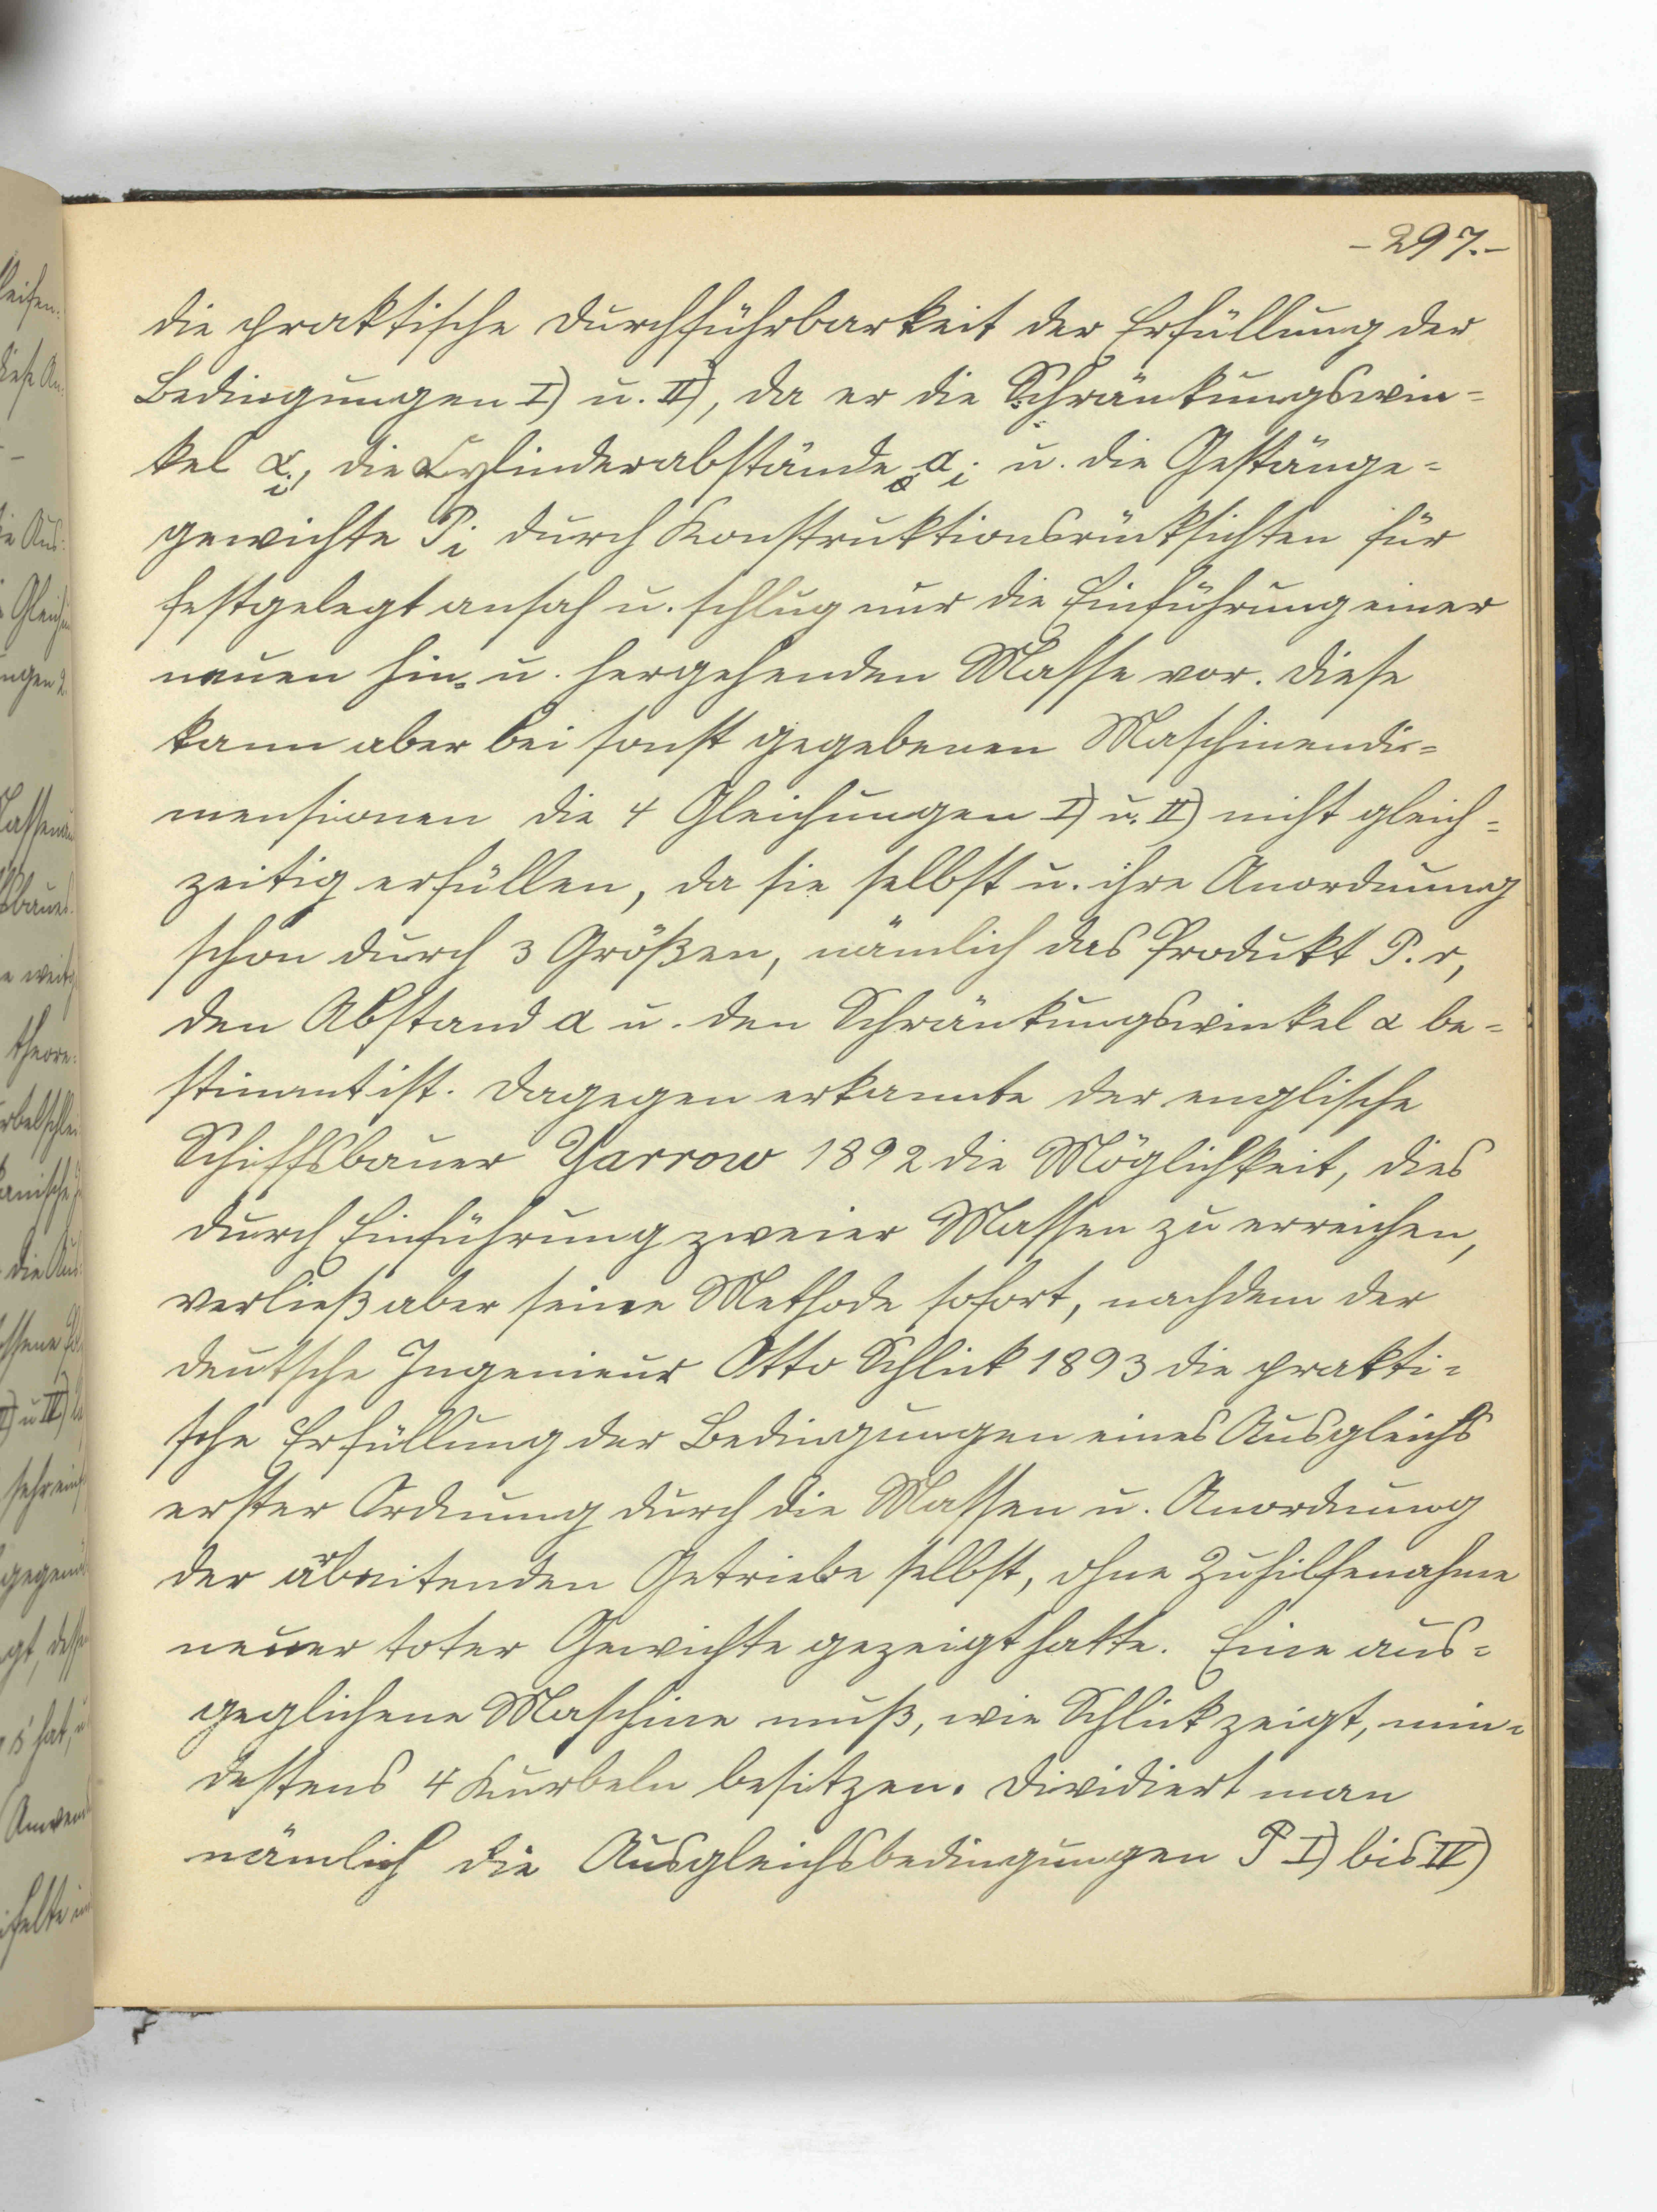 -297.-
die praktische Durchführbarkeit der Erfüllung der
Bedingungen I) u. II), da er die Schränkungswin=
kel αi, die Cylinderabstände ai u. die Gestänge=
gewichte Pi durch Konstruktionsrücksichten für
festgelegt ansah u. schlug nur die Einführung einer
neuen hin= u. hergehenden Masse vor. Diese
kann aber bei sonst gegebenen Maschinendi=
mensionen die 4 Gleichungen I) u. II) nicht gleich=
zeitig erfüllen, da sie selbst u. ihre Anordnung
schon durch 3 Größen, nämlich das Produkt P.r,
den Abstand a u. den Schränkungswinkel α be=
stimmt ist. Dagegen erkannte der englische
Schiffsbauer Yarrow 1892 die Möglichkeit, dies
durch Einführung zweier Massen zu erreichen,
verließ aber seine Methode sofort, nachdem der
deutsche Ingenieur Otto Schlick 1893 die prakti=
sche Erfüllung der Bedingungen eines Ausgleichs
erster Ordnung durch die Massen u. Anordnung
der arbeitenden Getriebe selbst, ohne Zuhilfenahme
neuer toter Gewichte gezeigt hatte. Eine aus=
geglichene Maschine muß, wie Schlick zeigt, min=
destens 4 Kurbeln besitzen. Dividiert man
nämlich die Ausgleichsbedingungen P I) bis IV)